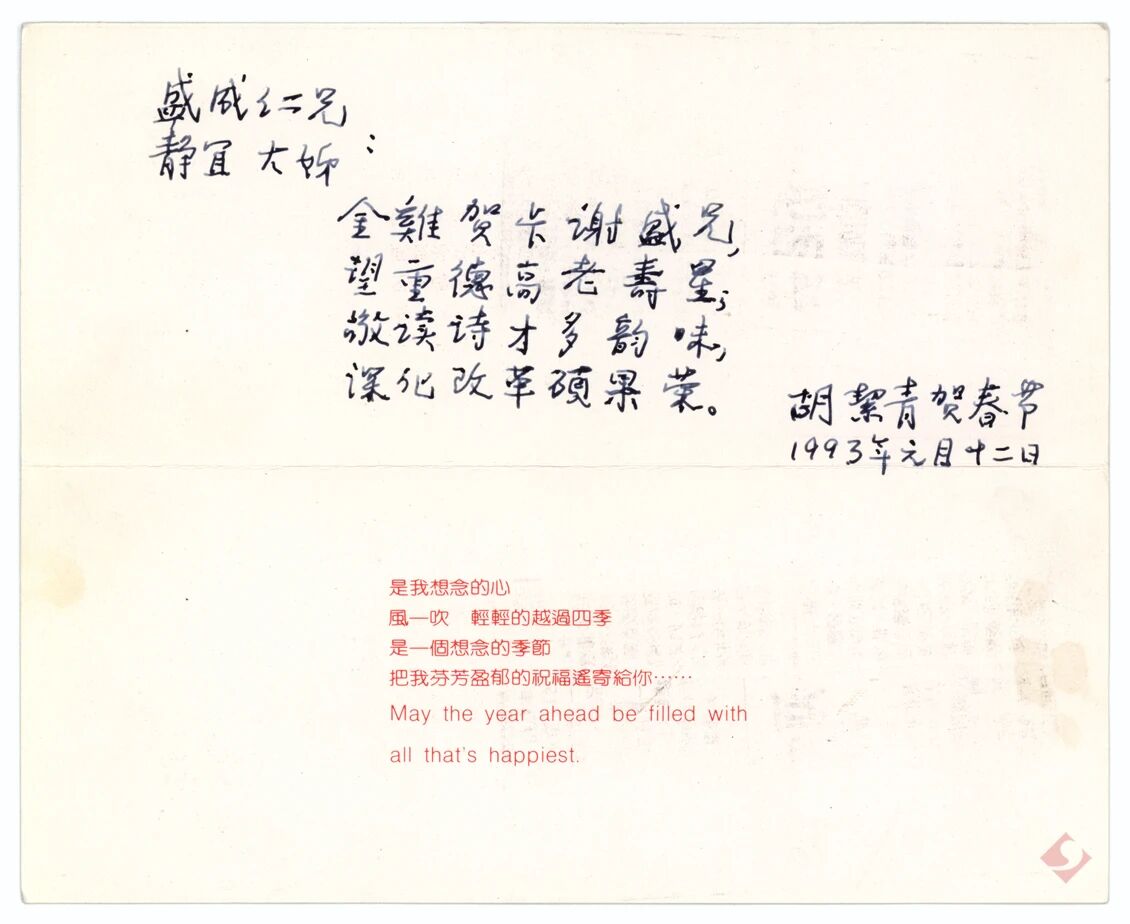 盛成仁兄
静宜大姊：
金雞贺卡谢盛兄，
望重德高老壽星；
敬读诗才多韵味，
深化改革碩果荣。
胡絜青贺春节
1993年元月十二日
是我想念的心
風一吹　輕輕的越過四季
是一個想念的季節
把我芬芳盈郁的祝福遙寄給你……
May the year ahead be filled with
all that's happiest.